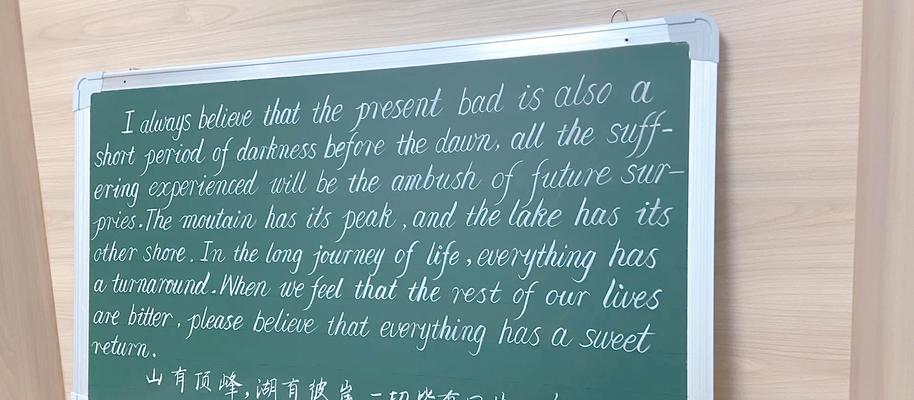 I always believe that the present bad is also a
short period of darkness before the dawn, all the suff-
ering experienced will be the ambush of future sur-
pries. The moutain has its peak, and the lake has its
other shore. In the long journey of life, everything has
a turnaround. When we feel that the rest of our lives
are bitter, please believe that everything has a sweet
return.
山有顶峰,湖有彼岸